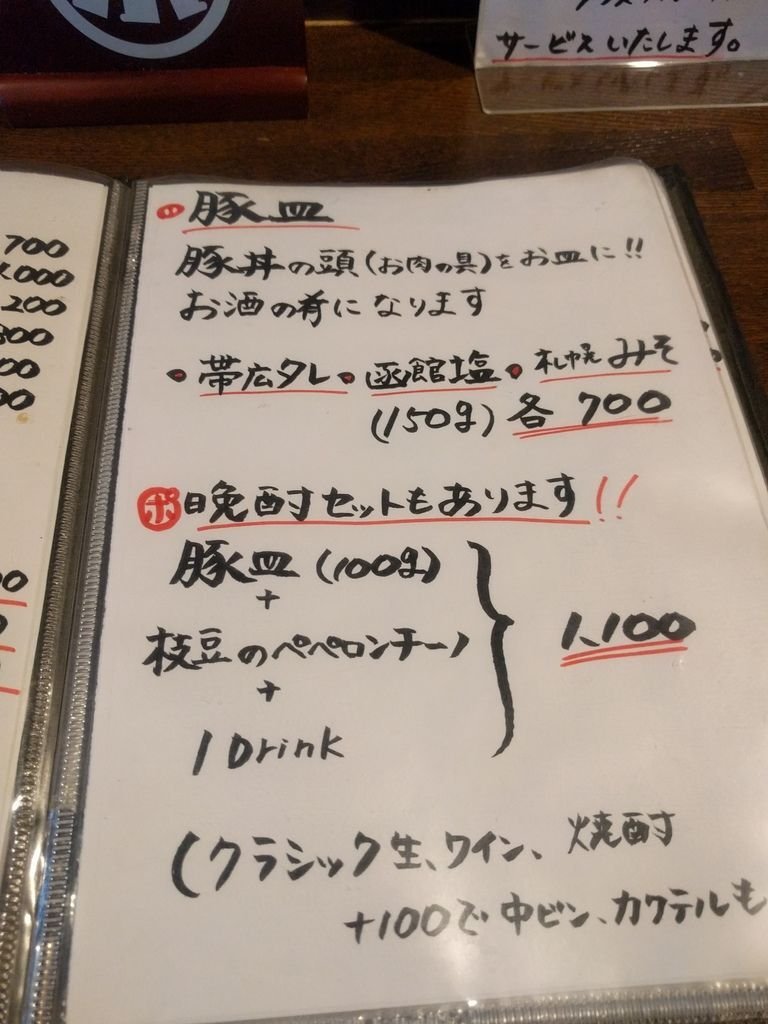 サービスいたします。
700
,000
200
800
00
00
豚皿
豚丼の頭(お肉の具)をお皿に!!
お酒の肴になります
・帯広タレ・函館塩・札幌みそ
(150g)各 700
ポ 晩酌セットもあります!!
豚皿(100g)
+
枝豆のペペロンチーノ
+
1 Drink
1,100
(クラシック生、ワイン、焼酎
+100で中ビン、カクテルも